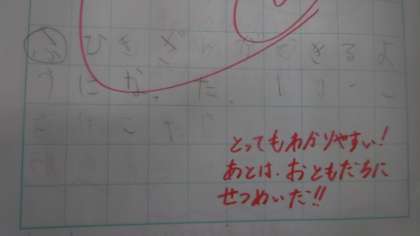 ふ ひきざんができるよ
うになった。
とってもわかりやすい!
あとは、おともだちに
せつめいだ!!